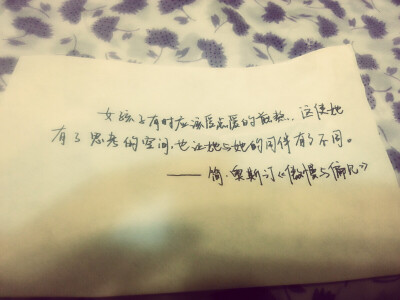 女孩子有时应该点的，这使她
有了思考的空间，也让她与她的同伴有了不同。
—— 简·奥斯汀《傲慢与偏见》